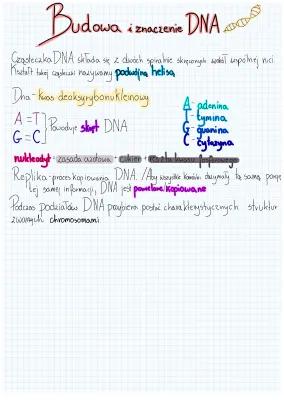 Budowa i znaczenie DNA
Cząsteczka DNA składa się z dwóch spiralnie skręconych wokół wspólnej nici
Kształt takiej cząsteczki nazywamy podwójną helisą
Dna - kwas deoksyrybonukleinowy
A = T
G = C
Powoduje skręt DNA
A - adenina
T - tymina
G - guanina
C - cytozyna
nukleotyd - zasada azotowa + cukier + reszta kwasu fosforowego
Replika - proces kopiowania DNA. /Aby wszystkie komórki otrzymały tą samą
tej samej informacji, DNA jest powielane/kopiowane
Podczas podziałów DNA przybiera postać charakterystycznych struktur
zwanych chromosomami.